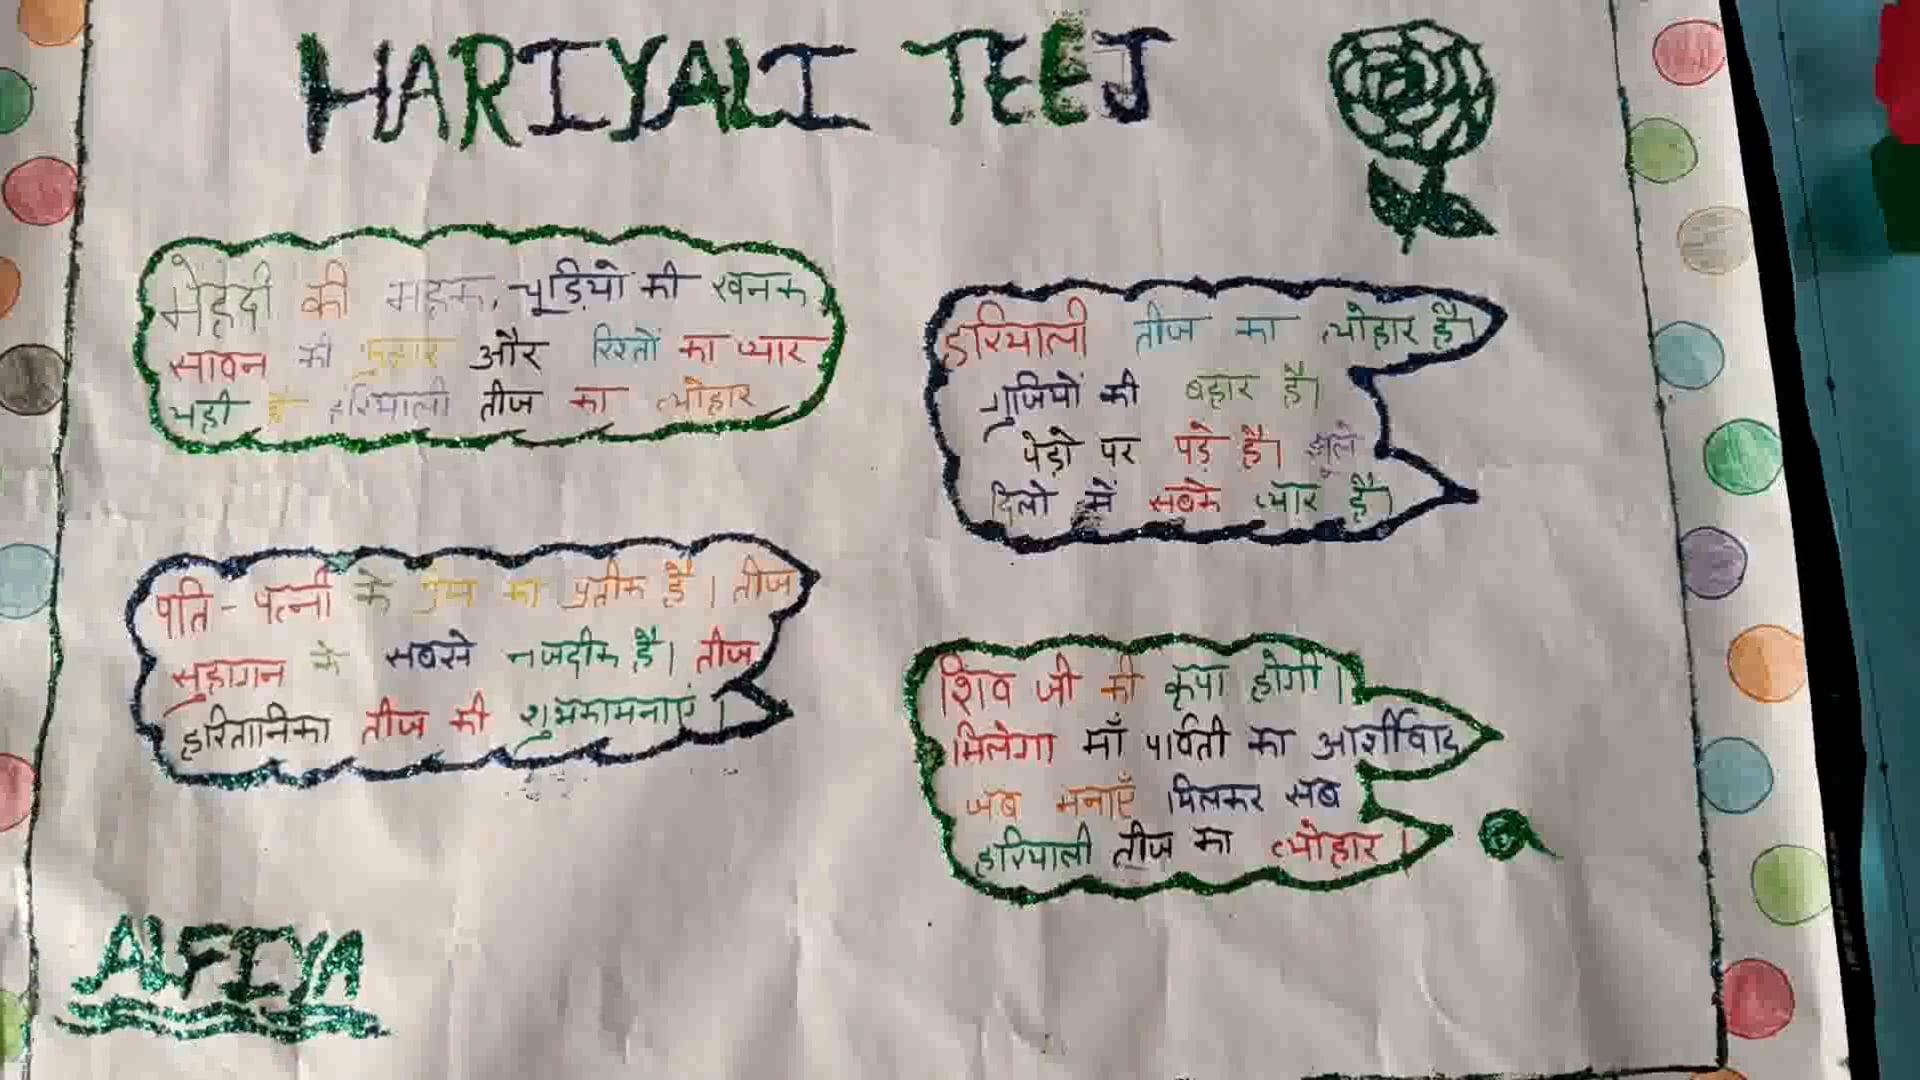 HARIYALI TEEJ
मेहदी की महक, चूड़ियो की खनक
सावन की फुहार और रिश्तों का प्यार
यही है हरियाली तीज का त्योहार
हरियाली तीज का त्योहार है।
गुजियों की बहार है।
पेड़ो पर पड़े है। झूले
दिलो में सबके प्यार है।
पति-पत्नी के प्रेम का प्रतीक है। तीज
सुहागन के सबसे नजदीक है। तीज
हरितानिका तीज की शुभकामनाएं।
शिव जी की कृपा होगी।
मिलेगा माँ पार्वती का आर्शीवाद
जब मनाएँ मिलकर सब
हरियाली तीज का त्योहार।
ALFIYA